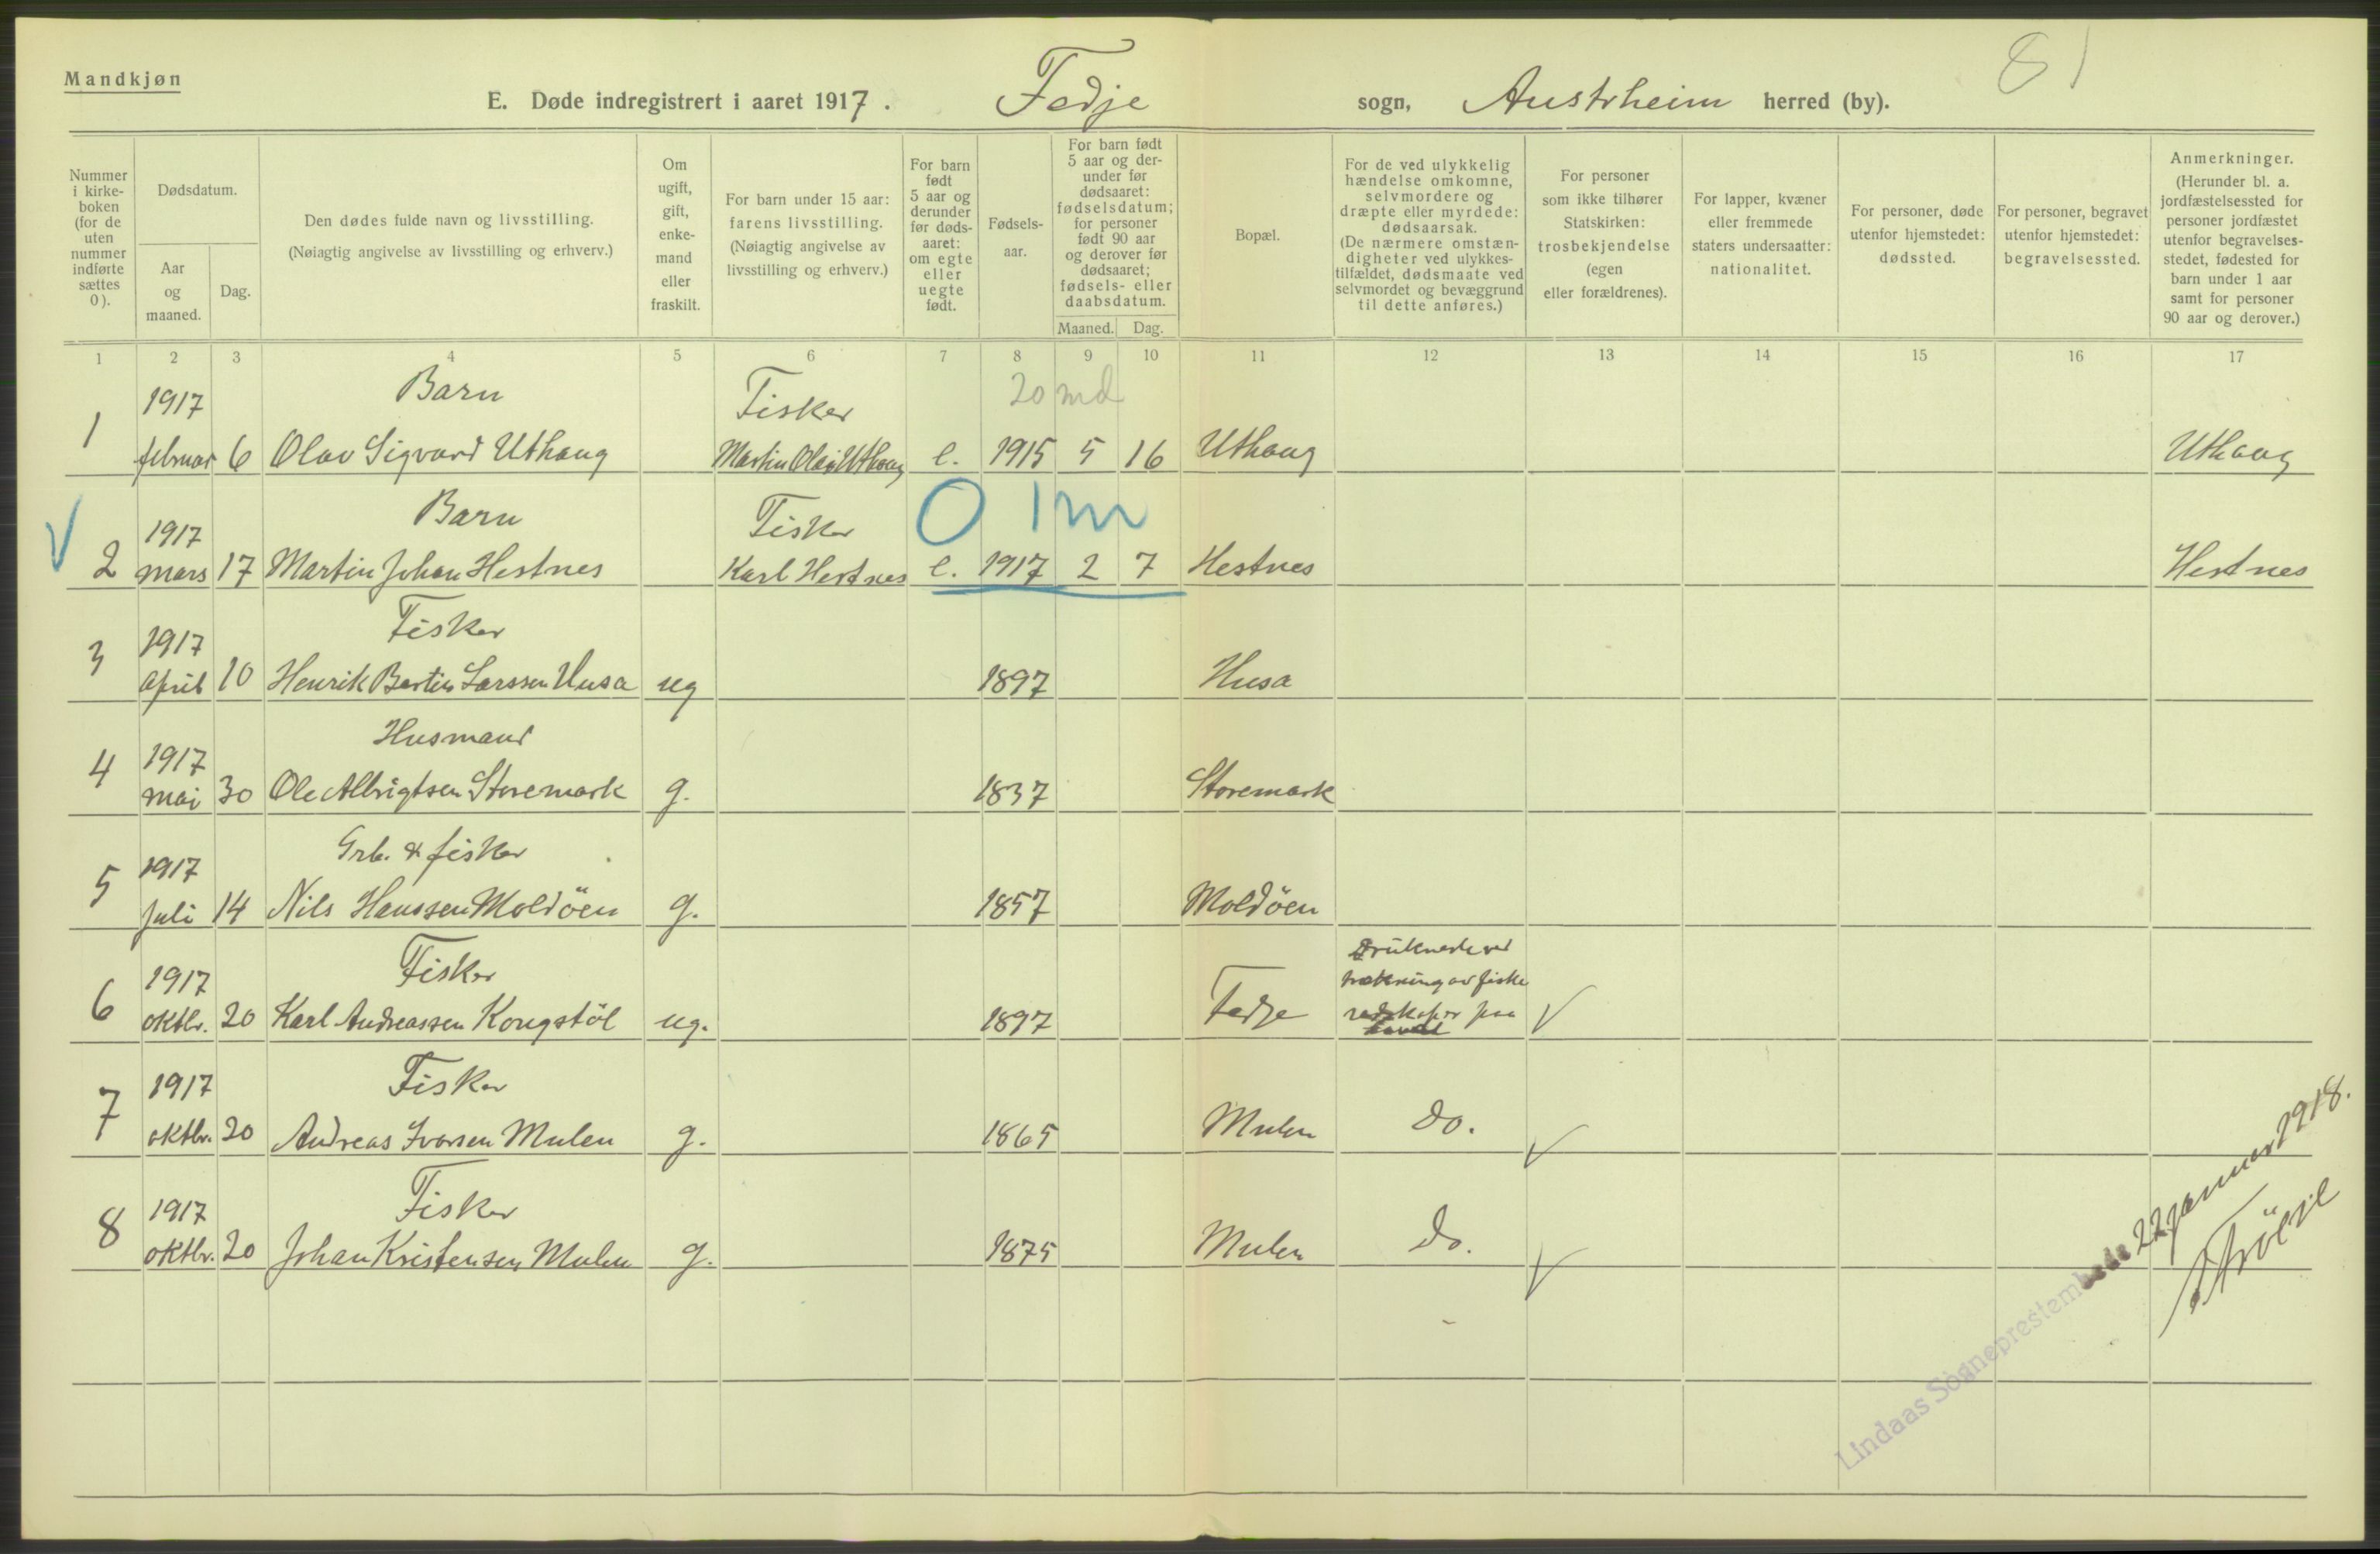 Mandkjøn
81
E. Døde indregistrert i aaret 1917. Fedje sogn, Austrheim herred (by).
Nummer i kirke-boken (for de uten nummer indførte sættes 0).
Dødsdatum.
Aar og maaned.
Dag.
Den dødes fulde navn og livsstilling.
(Nøiagtig angivelse av livsstilling og erhverv.)
Om ugift, gift, enke-mand eller fraskilt.
For barn under 15 aar: farens livsstilling.
(Nøiagtig angivelse av livsstilling og erhverv.)
For barn født 5 aar og derunder før døds-aaret: om egte eller uegte født.
Fødsels-aar.
For barn født 5 aar og der-under før dødsaaret: fødselsdatum; for personer født 90 aar og derover før dødsaaret; fødsels- eller daabsdatum.
Maaned. Dag.
Bopæl.
For de ved ulykkelig hændelse omkomne, selvmordere og dræpte eller myrdede: dødsaarsak.
(De nærmere omstæn-digheter ved ulykkes-tilfældet, dødsmaate ved selvmordet og bevæggrund til dette anføres.)
For personer som ikke tilhører Statskirken: trosbekjendelse (egen eller forældrenes).
For lapper, kvæner eller fremmede staters undersaatter: nationalitet.
For personer, døde utenfor hjemstedet: dødssted.
For personer, begravet utenfor hjemstedet: begravelsessted.
Anmerkninger.
(Herunder bl. a. jordfæstelsessted for personer jordfæstet utenfor begravelses-stedet, fødested for barn under 1 aar samt for personer 90 aar og derover.)
1 2 3 4 5 6 7 8 9 10 11 12 13 14 15 16 17
1917 Barn Fisker 20 md
1 februar 6 Olav Sigvard Uthaug Martin Olai Uthaug e. 1915 5 16 Uthaug Uthaug
1917 Barn Fisker 0 1 m
2 mars 17 Martin Johan Hestnes Karl Hestnes e. 1917 2 7 Hestnes Hestnes
1917 Fisker
3 april 10 Henrik Bertin Larssen Husa ug 1897 Husa
1917 Husmand
4 mai 30 Ole Albrigtsen Storemark g. 1837 Storemark
1917 Grb. & fisker
5 juli 14 Nils Hanssen Moldöen g. 1857 Moldöen
1917 Fisker Druknede ved
trækning av fiske
6 oktbr. 20 Karl Andreassen Kongstöl ug. 1897 Fedje redskaper paa
havet
1917 Fisker
7 oktbr. 20 Andreas Ivarsen Mulen g. 1865 Mulen do.
1917 Fisker
8 oktbr. 20 Johan Kristensen Mulen g. 1875 Mulen do.
Lindaas Sogneprestembede 22 januar 1918.